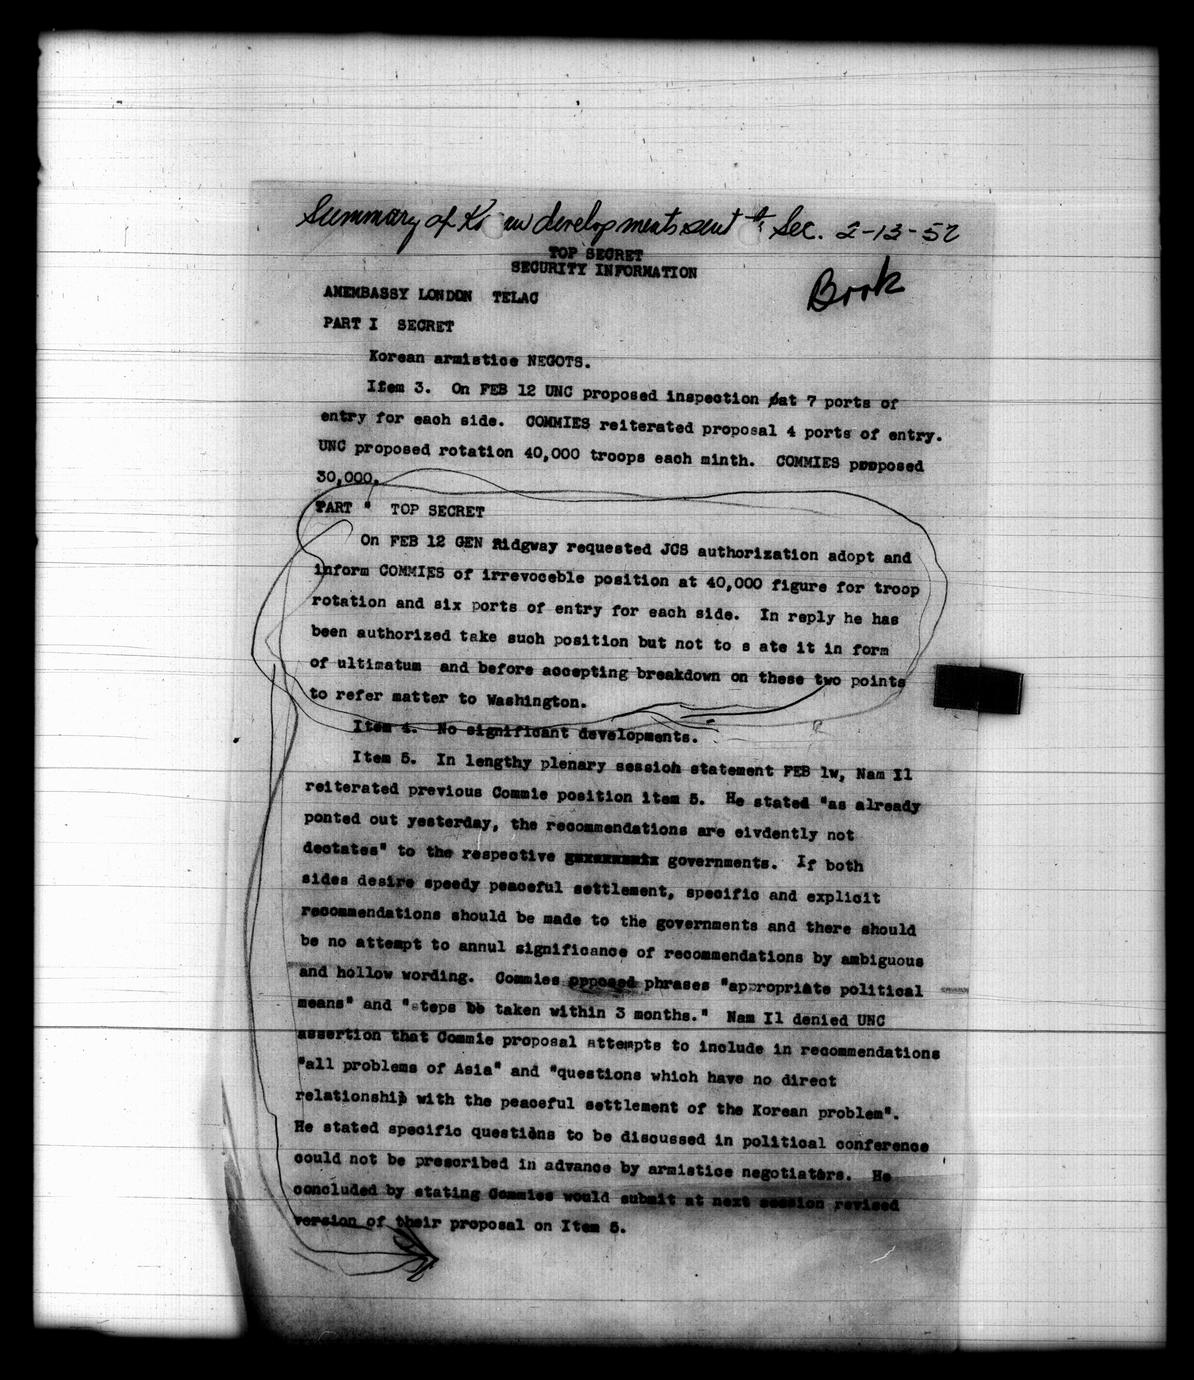 Summary of Ko ean developments sent to Sec. 2-13-52
TOP SECRET
SECURITY INFORMATION
Book
AMEMBASSY LONDON TELAC
PART I SECRET
Korean armistice NEGOTS.
Item 3. On FEB 12 UNC proposed inspection at 7 ports of
entry for each side. COMMIES reiterated proposal 4 ports of entry.
UNC proposed rotation 40,000 troops each minth. COMMIES pooposed
30,000.
PART " TOP SECRET
On FEB 12 GEN Ridgway requested JCS authorization adopt and
inform COMMIES of irrevoceble position at 40,000 figure for troop
rotation and six ports of entry for each side. In reply he has
been authorized take such position but not to s ate it in form
of ultimatum and before accepting breakdown on these two points
to refer matter to Washington.
Item 4. No significant developments.
Item 5. In lengthy plenary session statement FEB 1w, Nam Il
reiterated previous Commie position item 5. He stated "as already
ponted out yesterday, the recommendations are eivdently not
dectates" to the respective governments. If both
sides desire speedy peaceful settlement, specific and explicit
recommendations should be made to the governments and there should
be no attempt to annul significance of recommendations by ambiguous
and hollow wording. Commies opposed phrases "appropriate political
means" and "steps be taken within 3 months." Nam Il denied UNC
assertion that Commie proposal attempts to include in recommendations
"all problems of Asia" and "questions which have no direct
relationship with the peaceful settlement of the Korean problem".
He stated specific questions to be discussed in political conference
could not be prescribed in advance by armistice negotiators. He
concluded by stating Commies would submit at next session revised
version of their proposal on Item 5.